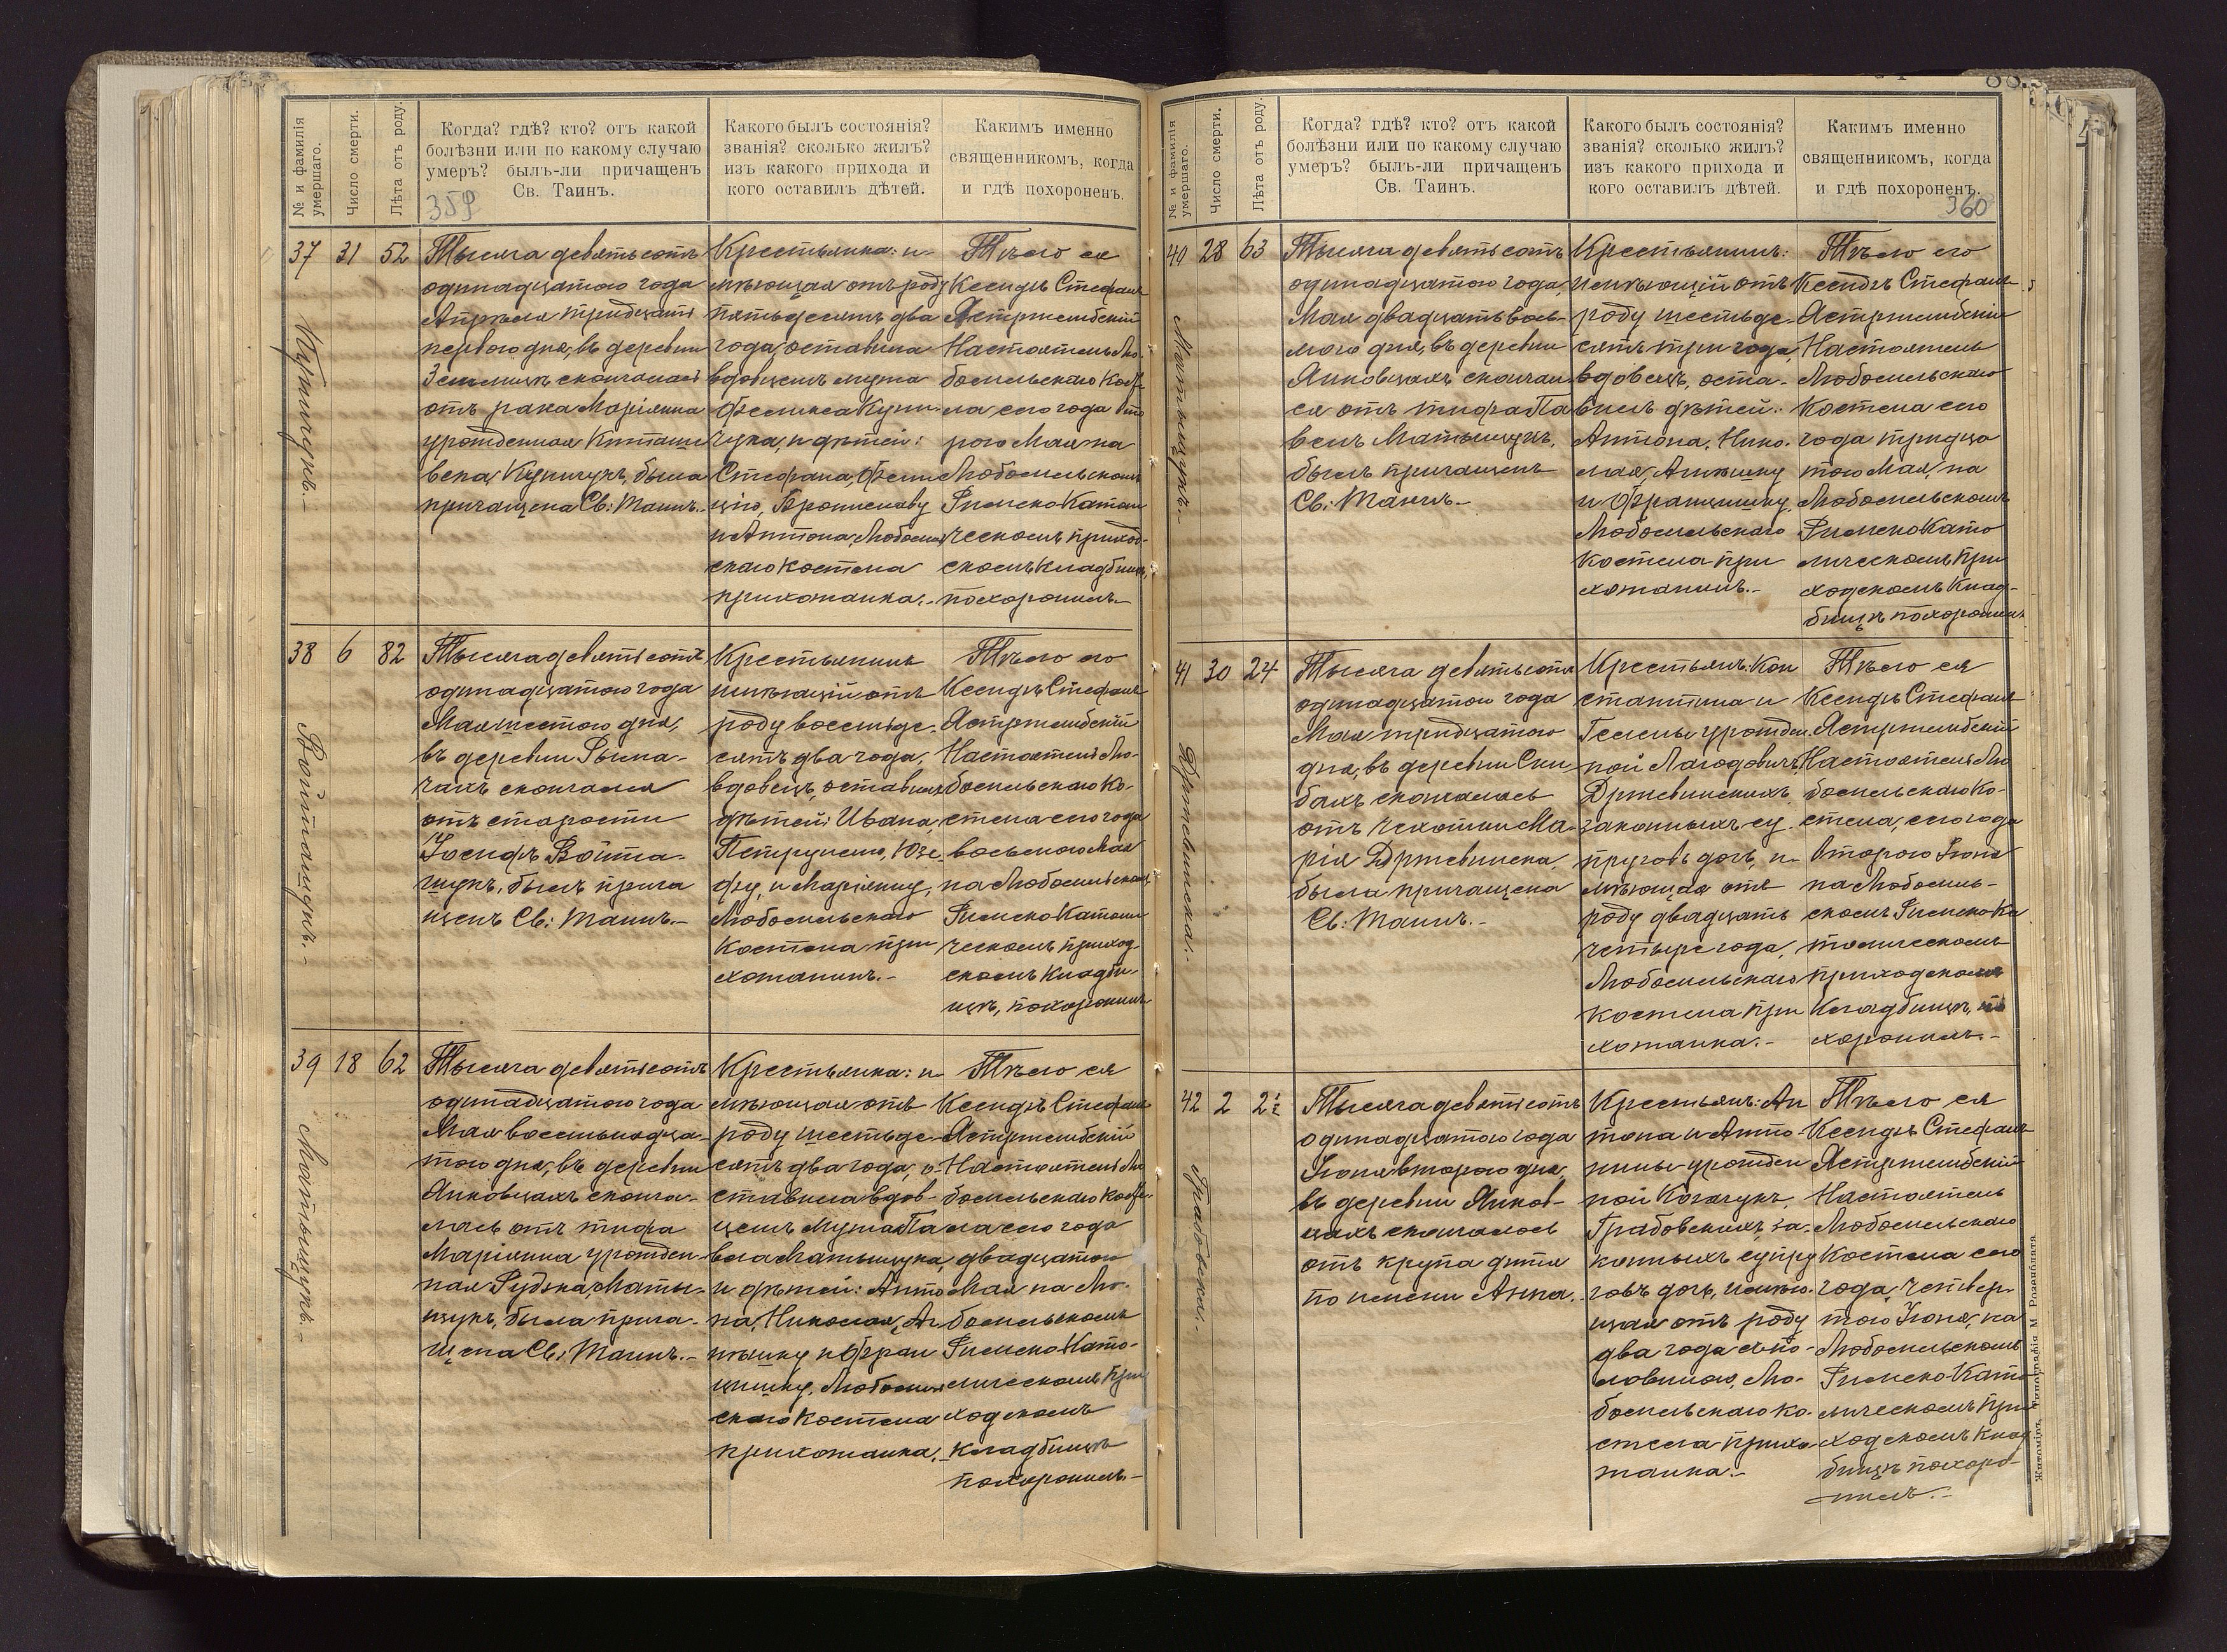 № и фамилія умершаго.
Число смерти.
Лѣта отъ роду.
Когда? гдѣ? кто? отъ какой
болѣзни или по какому случаю
умеръ? былъ-ли причащенъ
Св. Таинъ.
359
Какого былъ состоянія?
званія? сколько жилъ?
изъ какого прихода и
кого оставилъ дѣтей.
Какимъ именно
священникомъ, когда
и гдѣ похороненъ.
37
Купичукъ.-
31
52
Тысяча девятьсотъ
одинадцатого года
Апрѣля тридцать
первого дня, въ деревни
скончалась
отъ рака Маріянна
урожденная
Купичукъ, была
причащена Св: Таинъ.-
Крестьянка: и-
мѣющая отъ роду
пятьдесятъ два
года, оставила
вдовцемъ мужа
Феликса Купи-
чука, и дѣтей:
Стефана,
Брониславу
и Антона,
скаго костела
прихожанка.-
Тѣло ея
Ксендзъ Стефанъ
Ястржембскій
Настоятель Лю-
бомльскаго Косте-
ла сего года вто
рого Мая на
Любомльскомъ
Римско Католи
ческомъ приход-
скомъ кладбищѣ,
похоронилъ.-
38
Войтащукъ.-
6
82
Тысяча девятьсотъ
одинадцатого года
Мая шестого дня,
въ деревни Рыма-
чахъ скончался
отъ старости
Іосифъ Войта-
щукъ, былъ прича
щенъ Св: Таинъ.-
Крестьянинъ
имѣющій отъ
роду восемьде-
сятъ два года,
вдовецъ, оставилъ
дѣтей: Ивана,
Петрунелю, Юзе-
фу, и Маріянну,
Любомльскаго
Костела при
хожанинъ.-
Тѣло его
Ксендзъ Стефанъ
Ястржембскій
Настоятель Лю-
бомльскаго Ко-
стела сего года
восьмого Мая
на Любомльскомъ
Римско Католи
ческомъ приход-
скомъ Кладби-
щѣ, похоронилъ
39
Матыщукъ.-
18
62
Тысяча девятьсотъ
одинадцатого года
Мая восемьнадца-
того дня, въ деревни
Янковцахъ сконча-
лась отъ тифа
Маріянна урожден-
ная Рудзка, Маты-
щукъ, была прича-
щена Св: Таинъ.-
Крестьянка: и
мѣющая отъ
роду шестьде-
сятъ два года, о-
ставила вдов-
цемъ мужа Па
вла Матыщука,
и дѣтей: Анто
на, Николая, Ан
нѣшку и Фран
цишку, Любомль
скаго Костела
прихожанка.-
Тѣло ея
Ксендзъ Стефанъ
Ястржембскій
Настоятель Лю
бомльскаго Косте-
ла сего года
двадцатого
Мая на Лю-
бомльскомъ
Римско Като-
лическомъ при
ходскомъ
кладбищѣ
похоронилъ.-
№ и фамилія умершаго.
Число смерти.
Лѣта отъ роду.
Когда? гдѣ? кто? отъ какой
болѣзни или по какому случаю
умеръ? былъ-ли причащенъ
Св. Таинъ.
Какого былъ состоянія?
званія? сколько жилъ?
изъ какого прихода и
кого оставилъ дѣтей.
Какимъ именно
священникомъ, когда
и гдѣ похороненъ.
360
40
Матыщукъ.-
28
63
Тысяча девятьсотъ
одинадцатого года,
Мая двадцать вось-
мого дня, въ деревни
Янковцахъ скончал
ся отъ тифа Па
велъ Матыщукъ,
былъ причащенъ
Св: Таинъ.-
Крестьянинъ:
имѣющій отъ
роду шестьде-
сятъ три года,
вдовецъ, оста-
вилъ дѣтей:
Антона, Нико-
лая, Аннѣшку
и Францишку,
Любомльскаго
Костела при
хожанинъ.-
Тѣло его
Ксендзъ Стефанъ
Ястржембскій
Настоятель
Любомльскаго
Костела сего
года тридца
того Мая, на
Любомльскомъ
Римско Като
лическомъ При
ходскомъ Клад-
бищѣ похоронилъ
41
Држевинска.-
30
24
Тысяча девятьсотъ
одинадцатого года
Мая тридцатого
дня, въ деревни Ски-
бахъ скончалась
отъ чахотки Ма-
рія Држевинска,
была причащена
Св: Таинъ.-
Крестьянъ: Кон
стантина и
Гелены урожден
ной Лагодовичъ,
Држевинскихъ
законныхъ су-
пруговъ дочь, и-
мѣющая отъ
роду двадцать
четыре года,
Любомльскаго
костела при
хожанка.-
Тѣло ея
Ксендзъ Стефанъ
Ястржембскій
Настоятель Лю
бомльскаго Ко-
стела, сего года
второго Іюня
на Любомль-
скомъ Римско Ка
толическомъ
приходскомъ
Кладбищѣ, по
хоронилъ.-
42
Грабовска.-
2
2½
Тысяча девятьсотъ
одинадцатого года
Іюня второго дня,
въ деревни Янков-
цахъ скончалось
отъ крупа дитя
по имени Анна.
Крестьянъ: Ан
тона и Анто-
нины урожден
ной Косачукъ,
Грабовскихъ, за-
конныхъ супру
говъ дочь, имѣю-
щая отъ роду
два года съ по-
ловиною, Лю-
бомльскаго Ко-
стела прихо-
жанка.-
Тѣло ея
Ксендзъ Стефанъ
Ястржембскій
Настоятель
Любомльскаго
Костела сего
года, четвер-
того Іюня, на
Любомльскомъ
Римско-Като
лическомъ При
ходскомъ Клад
бищѣ похоро-
нилъ.-
Житоміръ, Типографія М. Розенблята